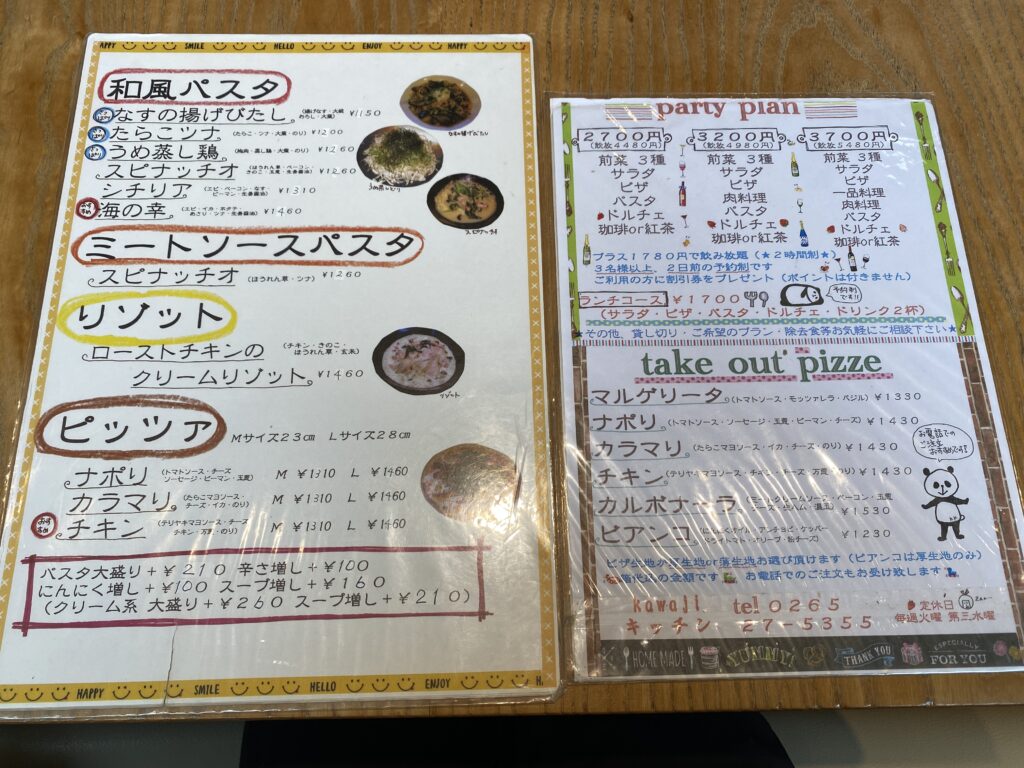 APPY SMILE HELLO ENJOY HAPPY
和風パスタ
なすの揚げびたし (揚げなす・大根おろし・大葉) ¥1150
たらこツナ (たらこ・ツナ・大葉・のり) ¥1200
うめ蒸し鶏 (梅肉・蒸し鶏・大葉・のり) ¥1260
スピナッチオ (ほうれん草・ベーコン・きのこ・玉葱・生姜醤油) ¥1260
シチリア (エビ・ベーコン・なす・ピーマン・生姜醤油) ¥1310
おすすめ 海の幸 (エビ・イカ・ホタテ・あさり・ツナ・生姜醤油) ¥1460
ミートソースパスタ
スピナッチオ (ほうれん草・ツナ) ¥1260
リゾット
ローストチキンの (チキン・きのこ・ほうれん草・玄米)
クリームリゾット ¥1460
リゾット
ピッツァ Mサイズ23cm Lサイズ28cm
ナポリ (トマトソース・チーズ ソーセージ・ピーマン・玉葱) M ¥1310 L ¥1460
カラマリ (たらこマヨソース・チーズ・イカ・のり) M ¥1310 L ¥1460
おすすめ チキン (テリヤキマヨソース・チーズ チキン・万葱・のり) M ¥1310 L ¥1460
パスタ大盛り+¥210 辛さ増し+¥100
にんにく増し+¥100 スープ増し+¥160
(クリーム系 大盛り+¥260 スープ増し+¥210)
HAPPY SMILE HELLO ENJOY
party plan
2700円 3200円 3700円
(飲放4480円) (飲放4980円) (飲放5480円)
前菜 3種 前菜 3種 前菜 3種
サラダ サラダ サラダ
ピザ ピザ ピザ
パスタ 肉料理 一品料理
ドルチェ パスタ 肉料理
珈琲or紅茶 ドルチェ パスタ
珈琲or紅茶 ドルチェ
珈琲or紅茶
プラス1780円で飲み放題(★2時間制★)
3名様以上、2日前の予約制です
ご利用の方に割引券をプレゼント(ポイントは付きません)
ランチコース ¥1700 予約制です!!
(サラダ・ピザ・パスタ・ドルチェ・ドリンク2杯)
★その他、貸し切り・ご希望のプラン・除去食等お気軽にご相談下さい★
take out pizze
マルゲリータ (トマトソース・モッツァレラ・バジル) ¥1330
ナポリ (トマトソース・ソーセージ・玉葱・ピーマン・チーズ) ¥1430
カラマリ (たらこマヨソース・イカ・チーズ・のり) ¥1430
チキン (テリヤキマヨソース・チキン・チーズ・万葱・のり) ¥1430
カルボナーラ ¥1530
ビアンコ ¥1230
お電話でのご注文お客様です!!
ピザ生地が厚生地or薄生地お選び頂けます(ビアンコは厚生地のみ)
箱代込の金額です お電話でのご注文もお受け致します
kawaji tel 0265
キッチン 27-5355
定休日
毎週火曜 第三水曜
HOME MADE YUMMY! THANK YOU ESPECIALLY FOR YOU